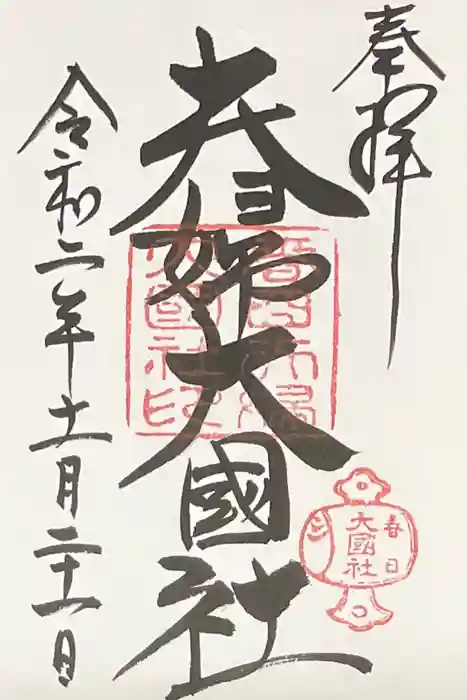 奉拝
夫婦大國社
令和二年十一月二十一日
春日夫婦
大國社印
春日
大國社